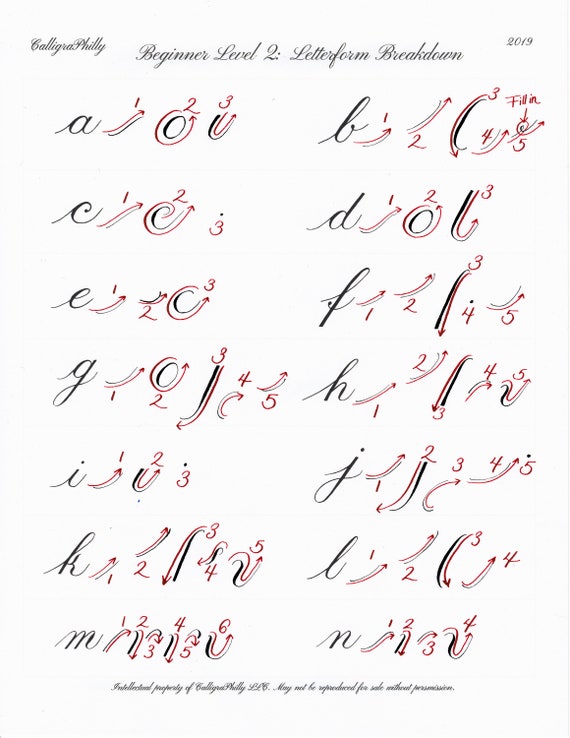 CalligraPhilly
2019
Beginner Level 2: Letterform Breakdown
a 1 2 3
b 1 2 3 4 Fill in 5
c 1 2 3
d 1 2 3
e 1 2 3
f 1 2 3 4 5
g 1 2 3 4 5
h 1 2 3 4 5
i 1 2 3
j 1 2 3 4 5
k 1 2 3 4 5
l 1 2 3 4
m 1 2 3 4 5 6
n 1 2 3 4
Intellectual property of CalligraPhilly LLC. May not be reproduced for sale without persmission.